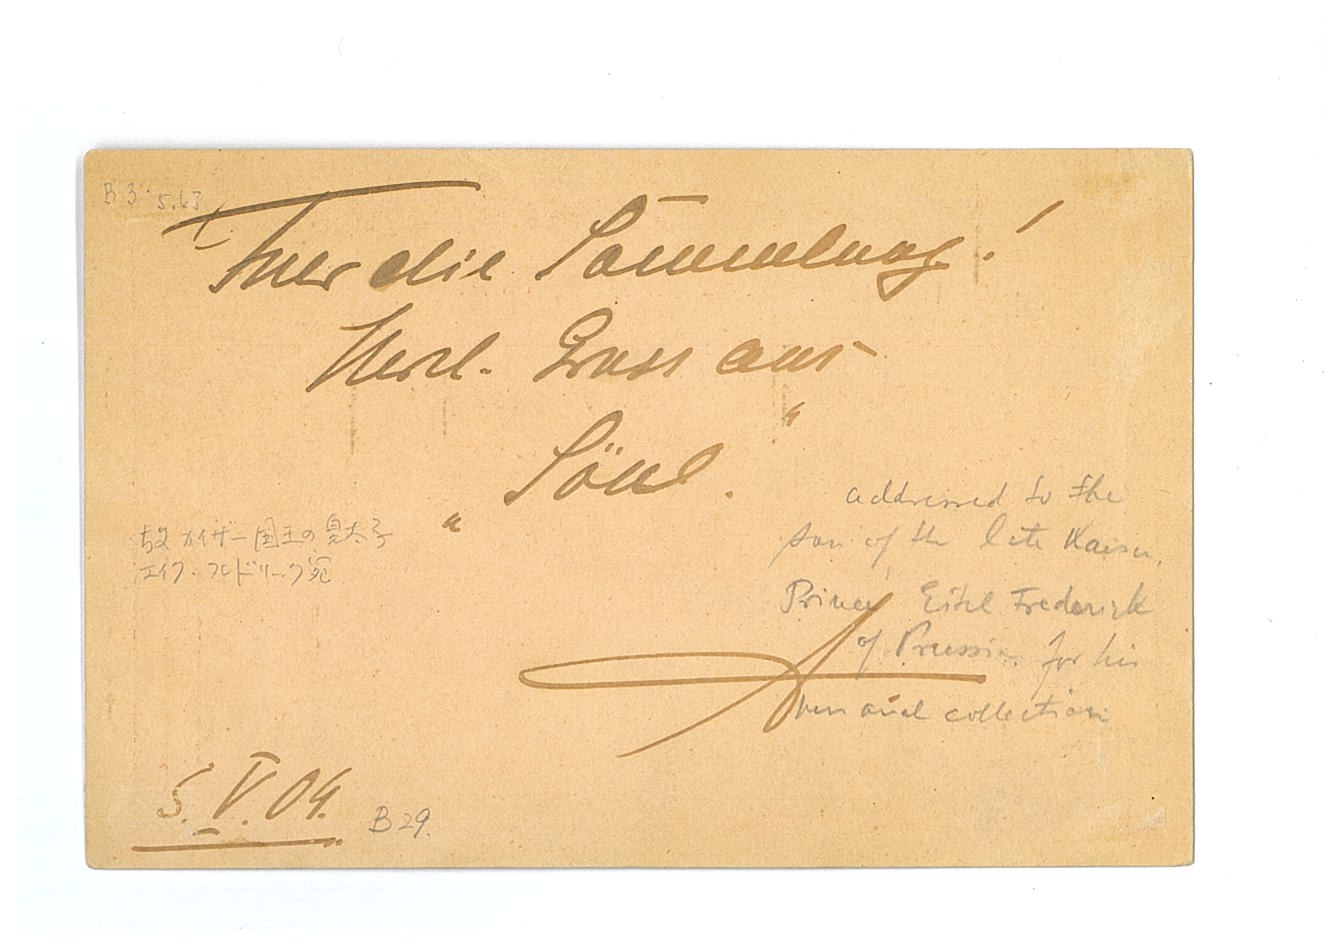 B 3 5.63
Fuer die Sammlung!
Herzl. Gruss aus
„Söul."
addressed to the
son of the late Kaiser,
Prince Eitel Frederick
of Prussia for his
personal collection
故カイザー国王の皇太子
エイク・フレドリーク宛
5. V. 04.
B 29.